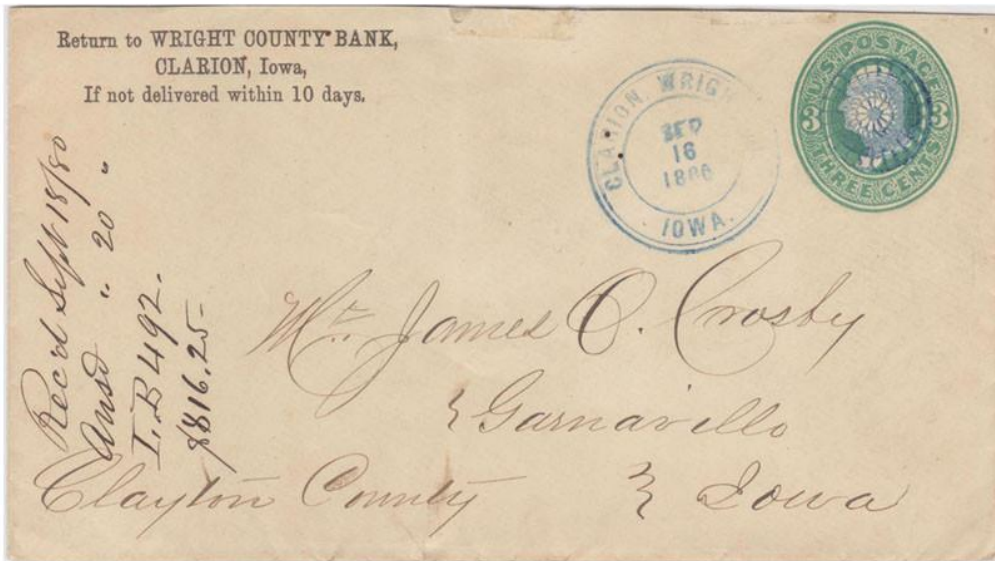 Return to WRIGHT COUNTY BANK,
CLARION, Iowa,
If not delivered within 10 days.
CLARION, WRIG
SEP
16
1880
IOWA.
U.S. POSTAGE
3 3
THREE CENTS
Rec'd Sept 18/80
Ansd " 20 "
I.B 492.
$816.25-
Mr. James O. Crosby
Garnavillo
Clayton County Iowa